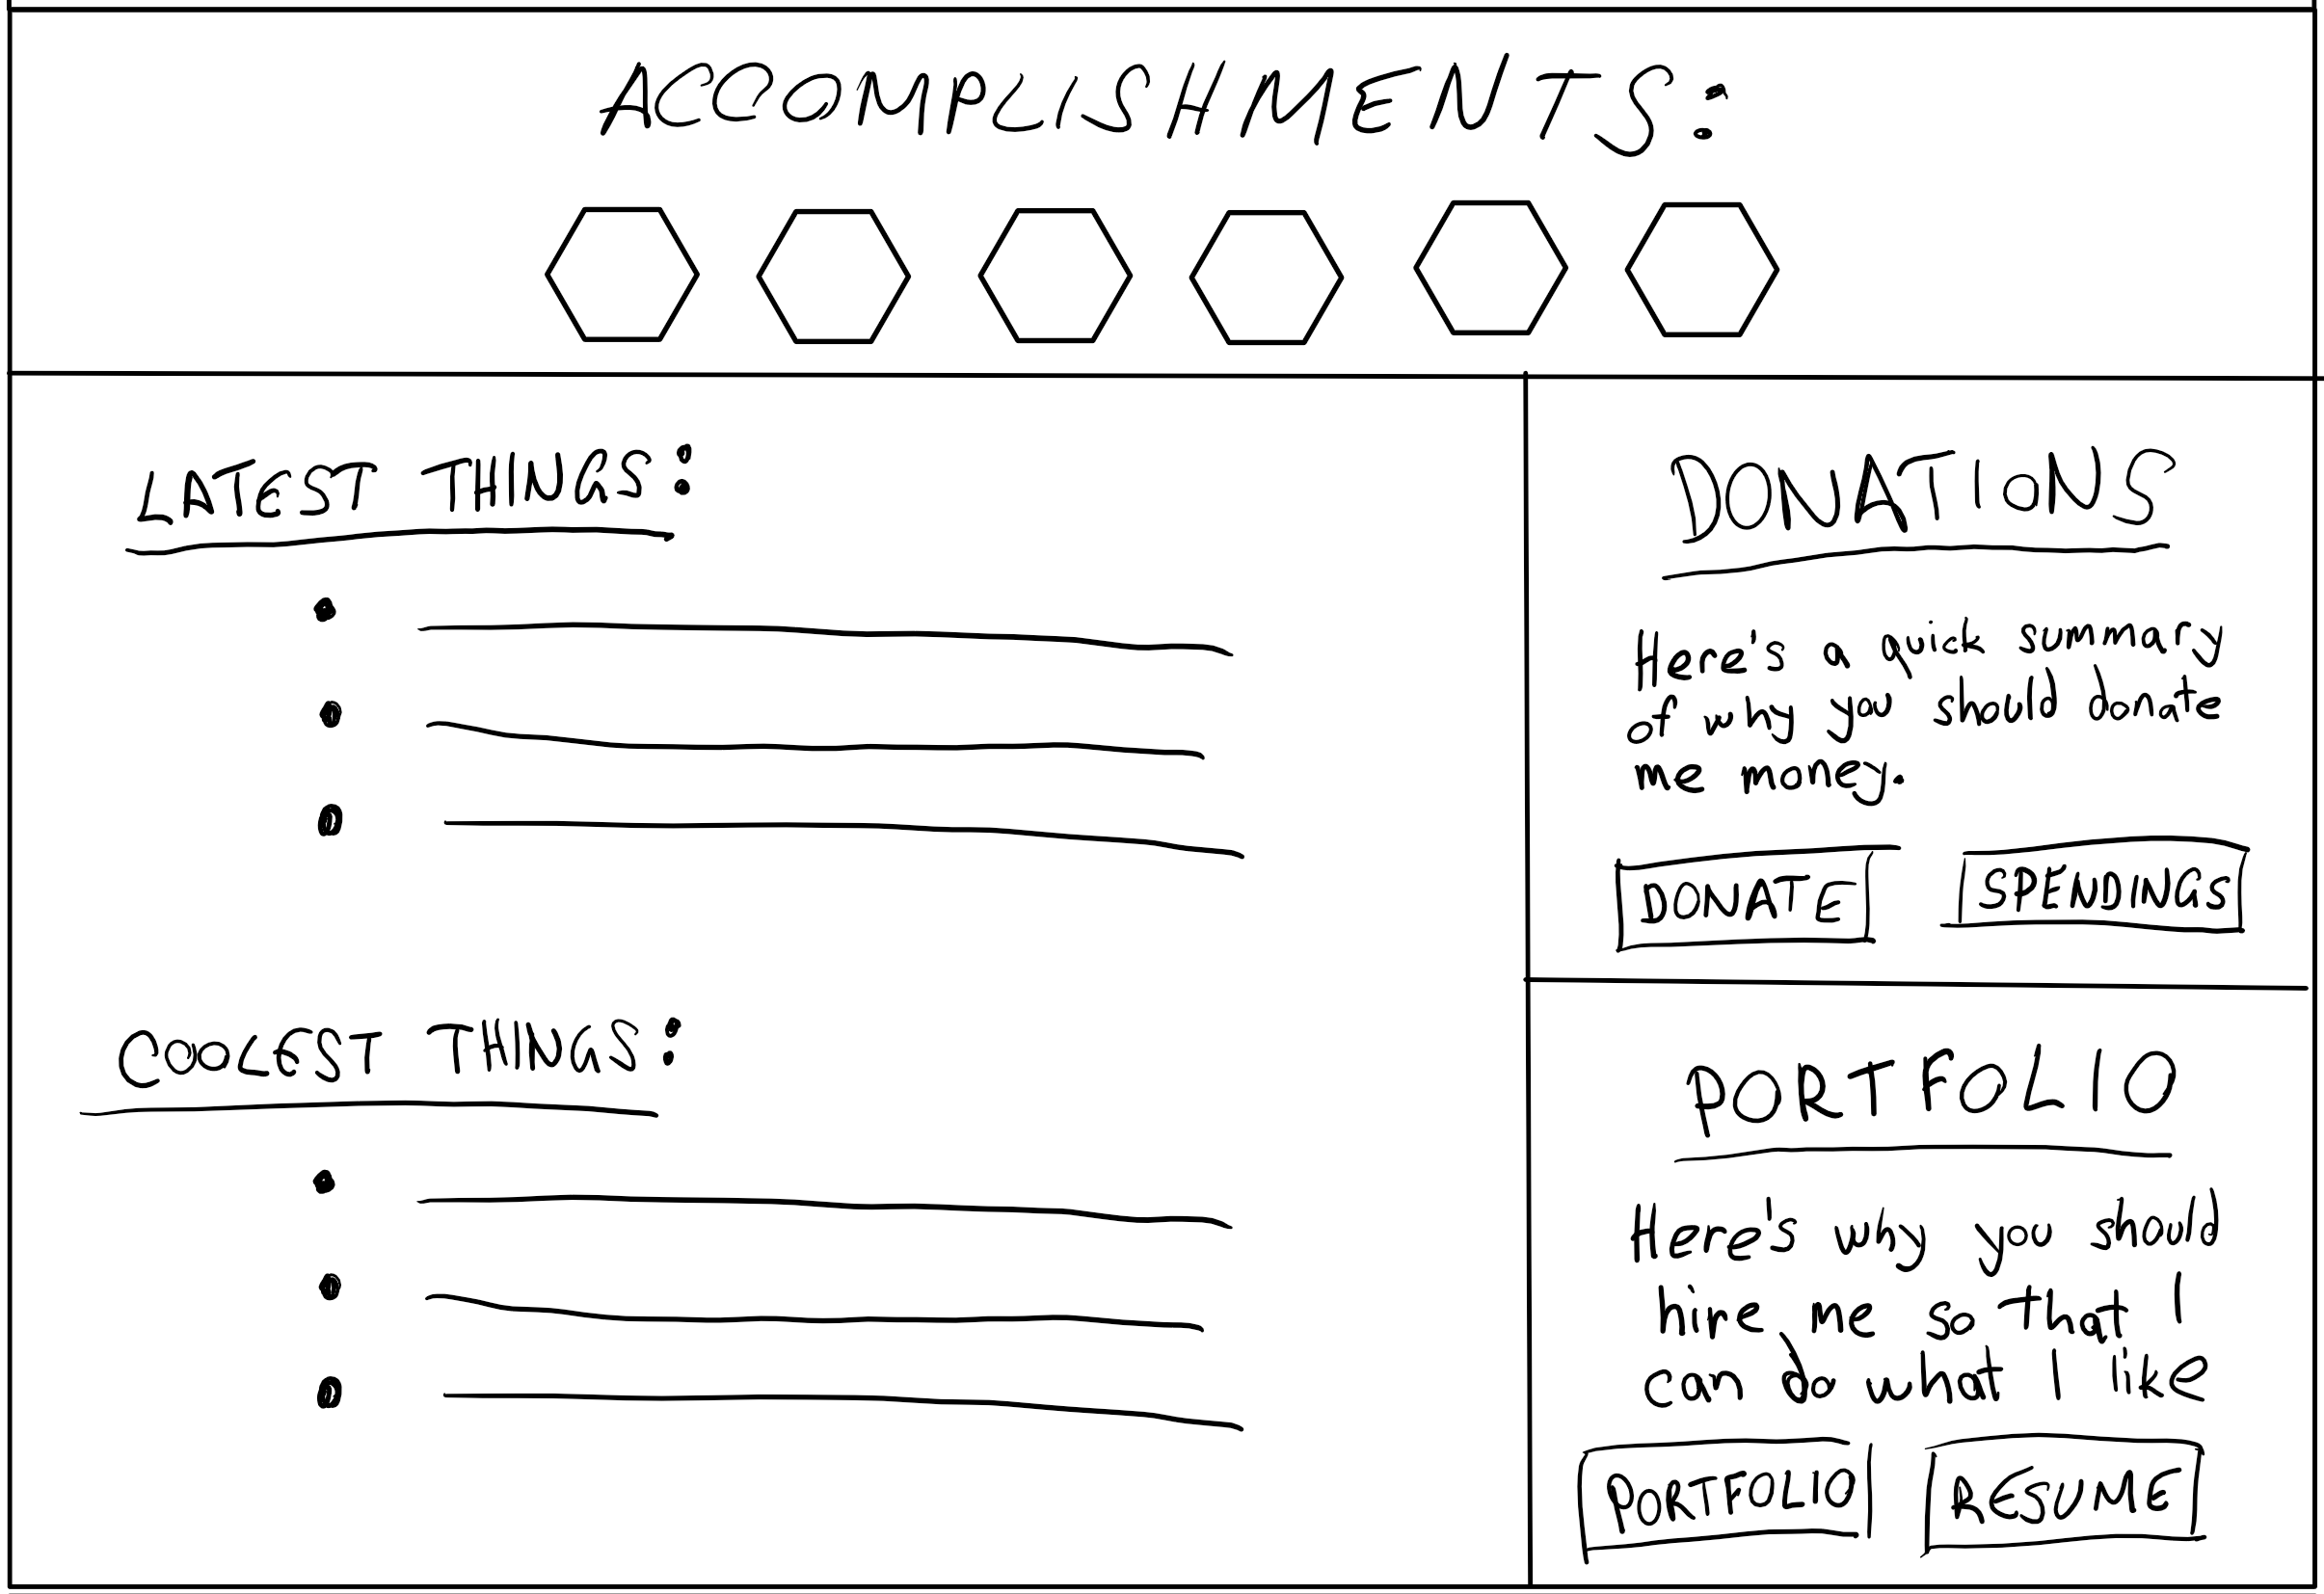 ACCOMPLISHMENTS:
LATEST THINGS:
COOLEST THINGS:
DONATIONS
Here's a quick summary
of why you should donate
me money.
DONATE
SPENDINGS
PORTFOLIO
Here's why you should
hire me so that I
can do what I like
PORTFOLIO
RESUME